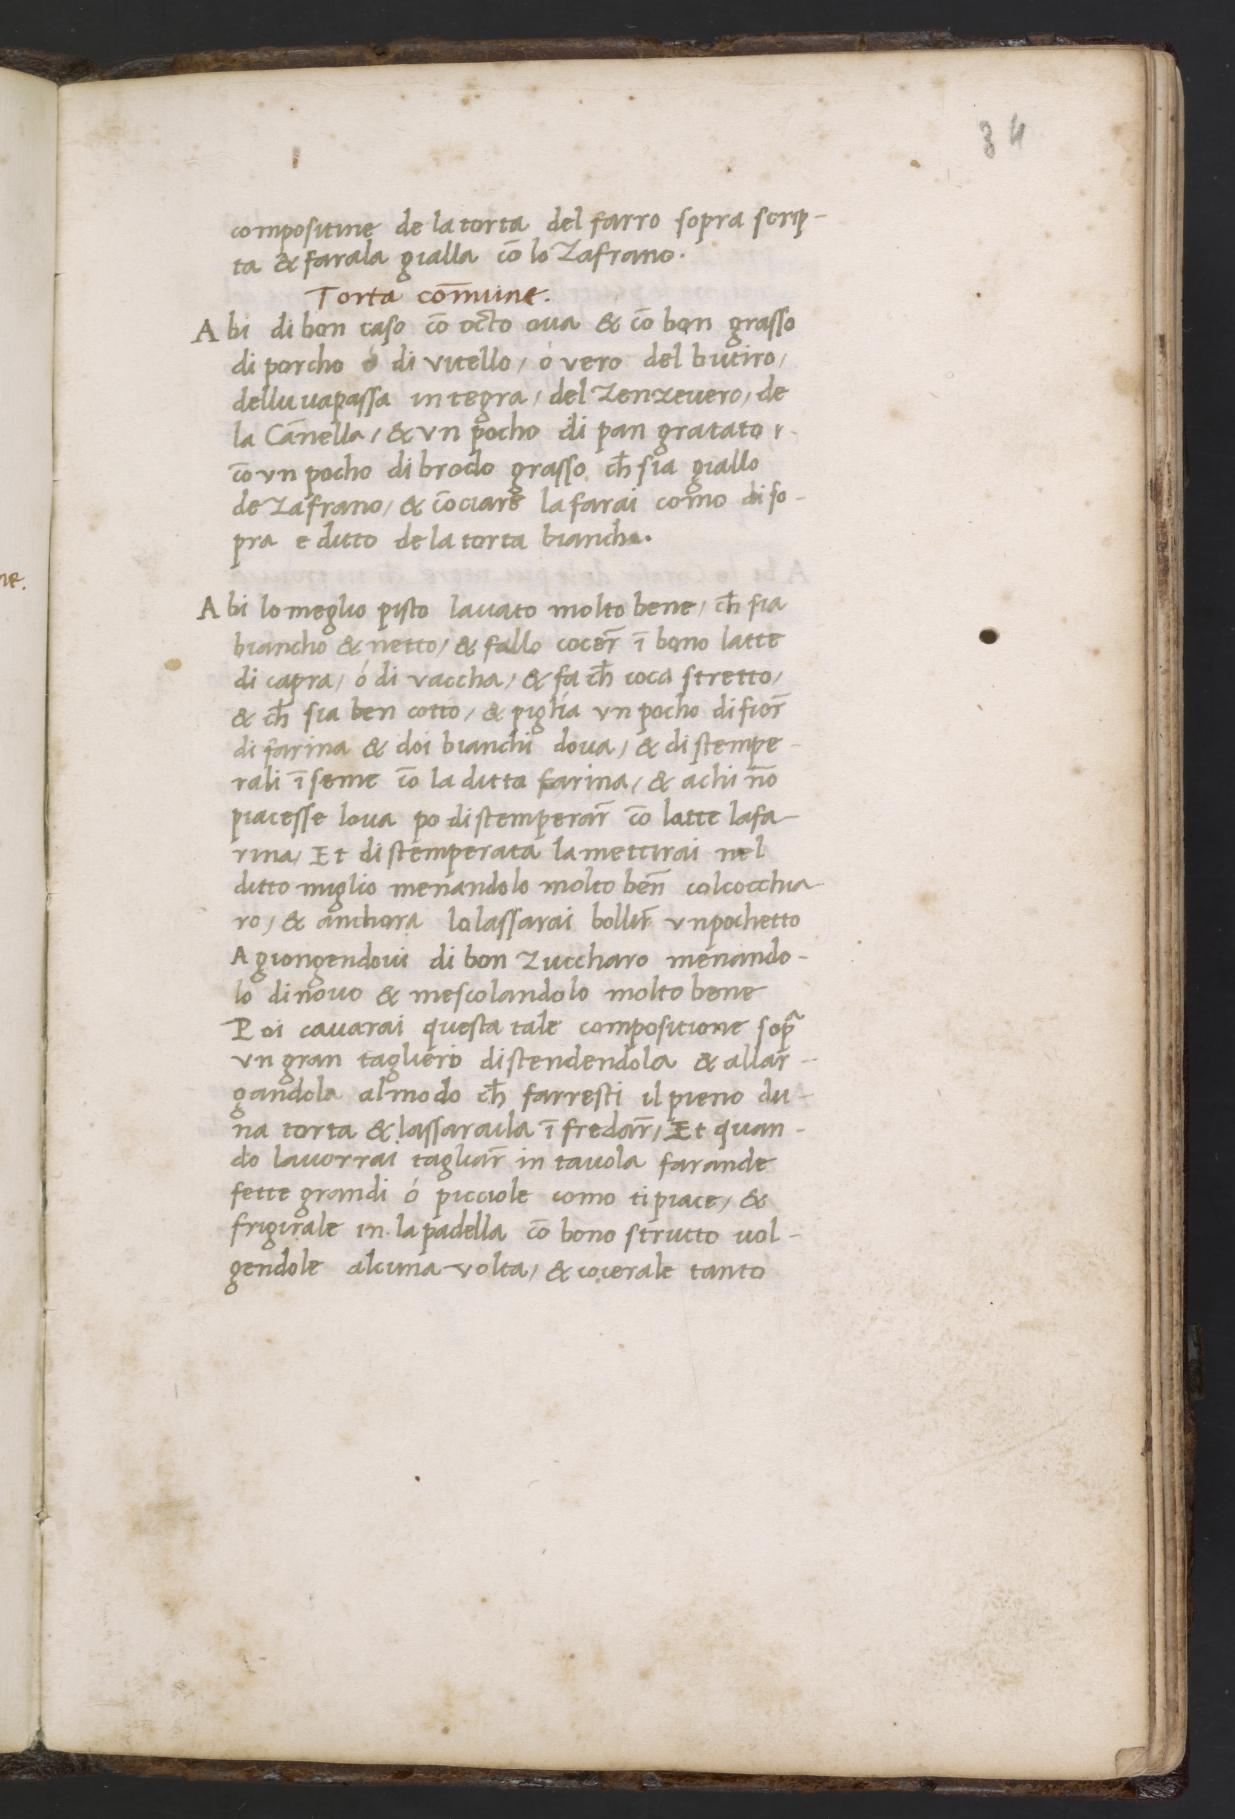 34
compositine de la torta del farro sopra scrip-
ta & farala gialla cõ lo Zafrano.
Torta cõmune.
ne.
Abi di bon caso cõ octo ova & cõ bon grasso
di porcho ó di vitello / ó vero del butiro /
dellu uapassa integra / del Zenzevero / de
la Cãnella / & vn pocho di pan gratato
cõ vn pocho di brodo grasso ch̃ sia giallo
de Zafrano / & cõciare la farai como di so-
pra e ditto de la torta biancha.
Abi lo meglio pisto lavato molto bene / ch̃ sia
biancho & netto / & fallo cocer̃ ĩ bono latte
di capra / ó di vaccha / & fa ch̃ coca stretto /
& ch̃ sia ben cotto / & piglia vn pocho di fior̃
di farina & doi bianchi dova / & distempe-
rali ĩ seme cõ la ditta farina / & achi nõ
piacesse lova po distemperar̃ cõ latte lafa-
rina / Et distemperata la mettirai nel
ditto miglio menandolo molto beñ colcocchia-
ro / & anchora lo lassarai bollir̃ vn pochetto
Agiongendovi di bon Zuccharo menando-
lo di novo & mescolandolo molto bene
Poi cavarai questa tale compositione sop̃ra
vn gran tagliero distendendola & allar-
gandola al modo ch̃ farresti il pieno du-
na torta & lassaraila ĩ fredar̃ / Et quan-
do lavorrai tagliar̃ in tavola farande
fette grandi ó picciole como ti piace / &
frigirale in la padella cõ bono structo vol-
gendole alcuna volta / & cocerale tanto